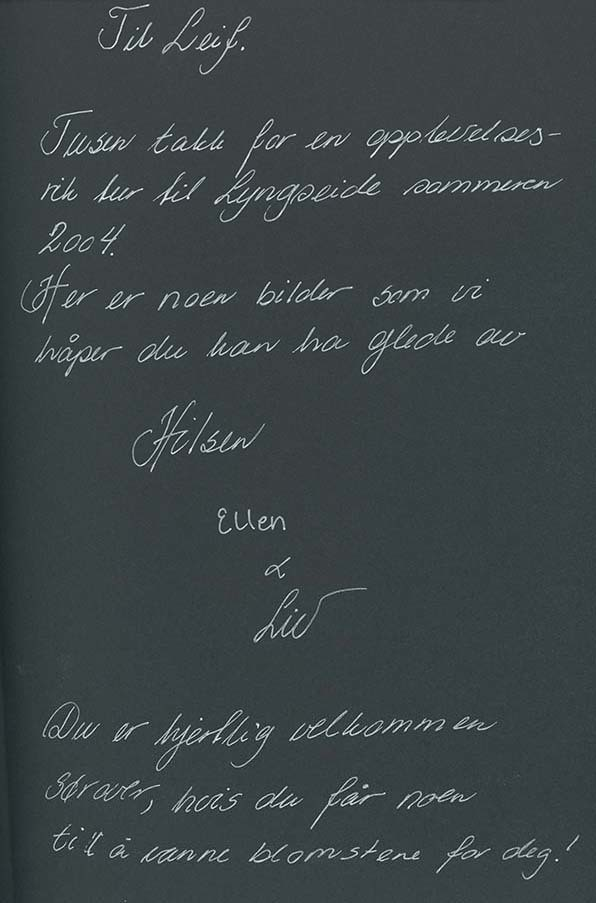 Til Leif.
Tusen takk for en opplevelses-
rik tur til Lyngseide sommeren
2004.
Her er noen bilder som vi
håper du kan ha glede av
Hilsen
Ellen
&
Liv
Du er hjertlig velkommen
sørover, hvis du får noen
till å vanne blomstene for deg!